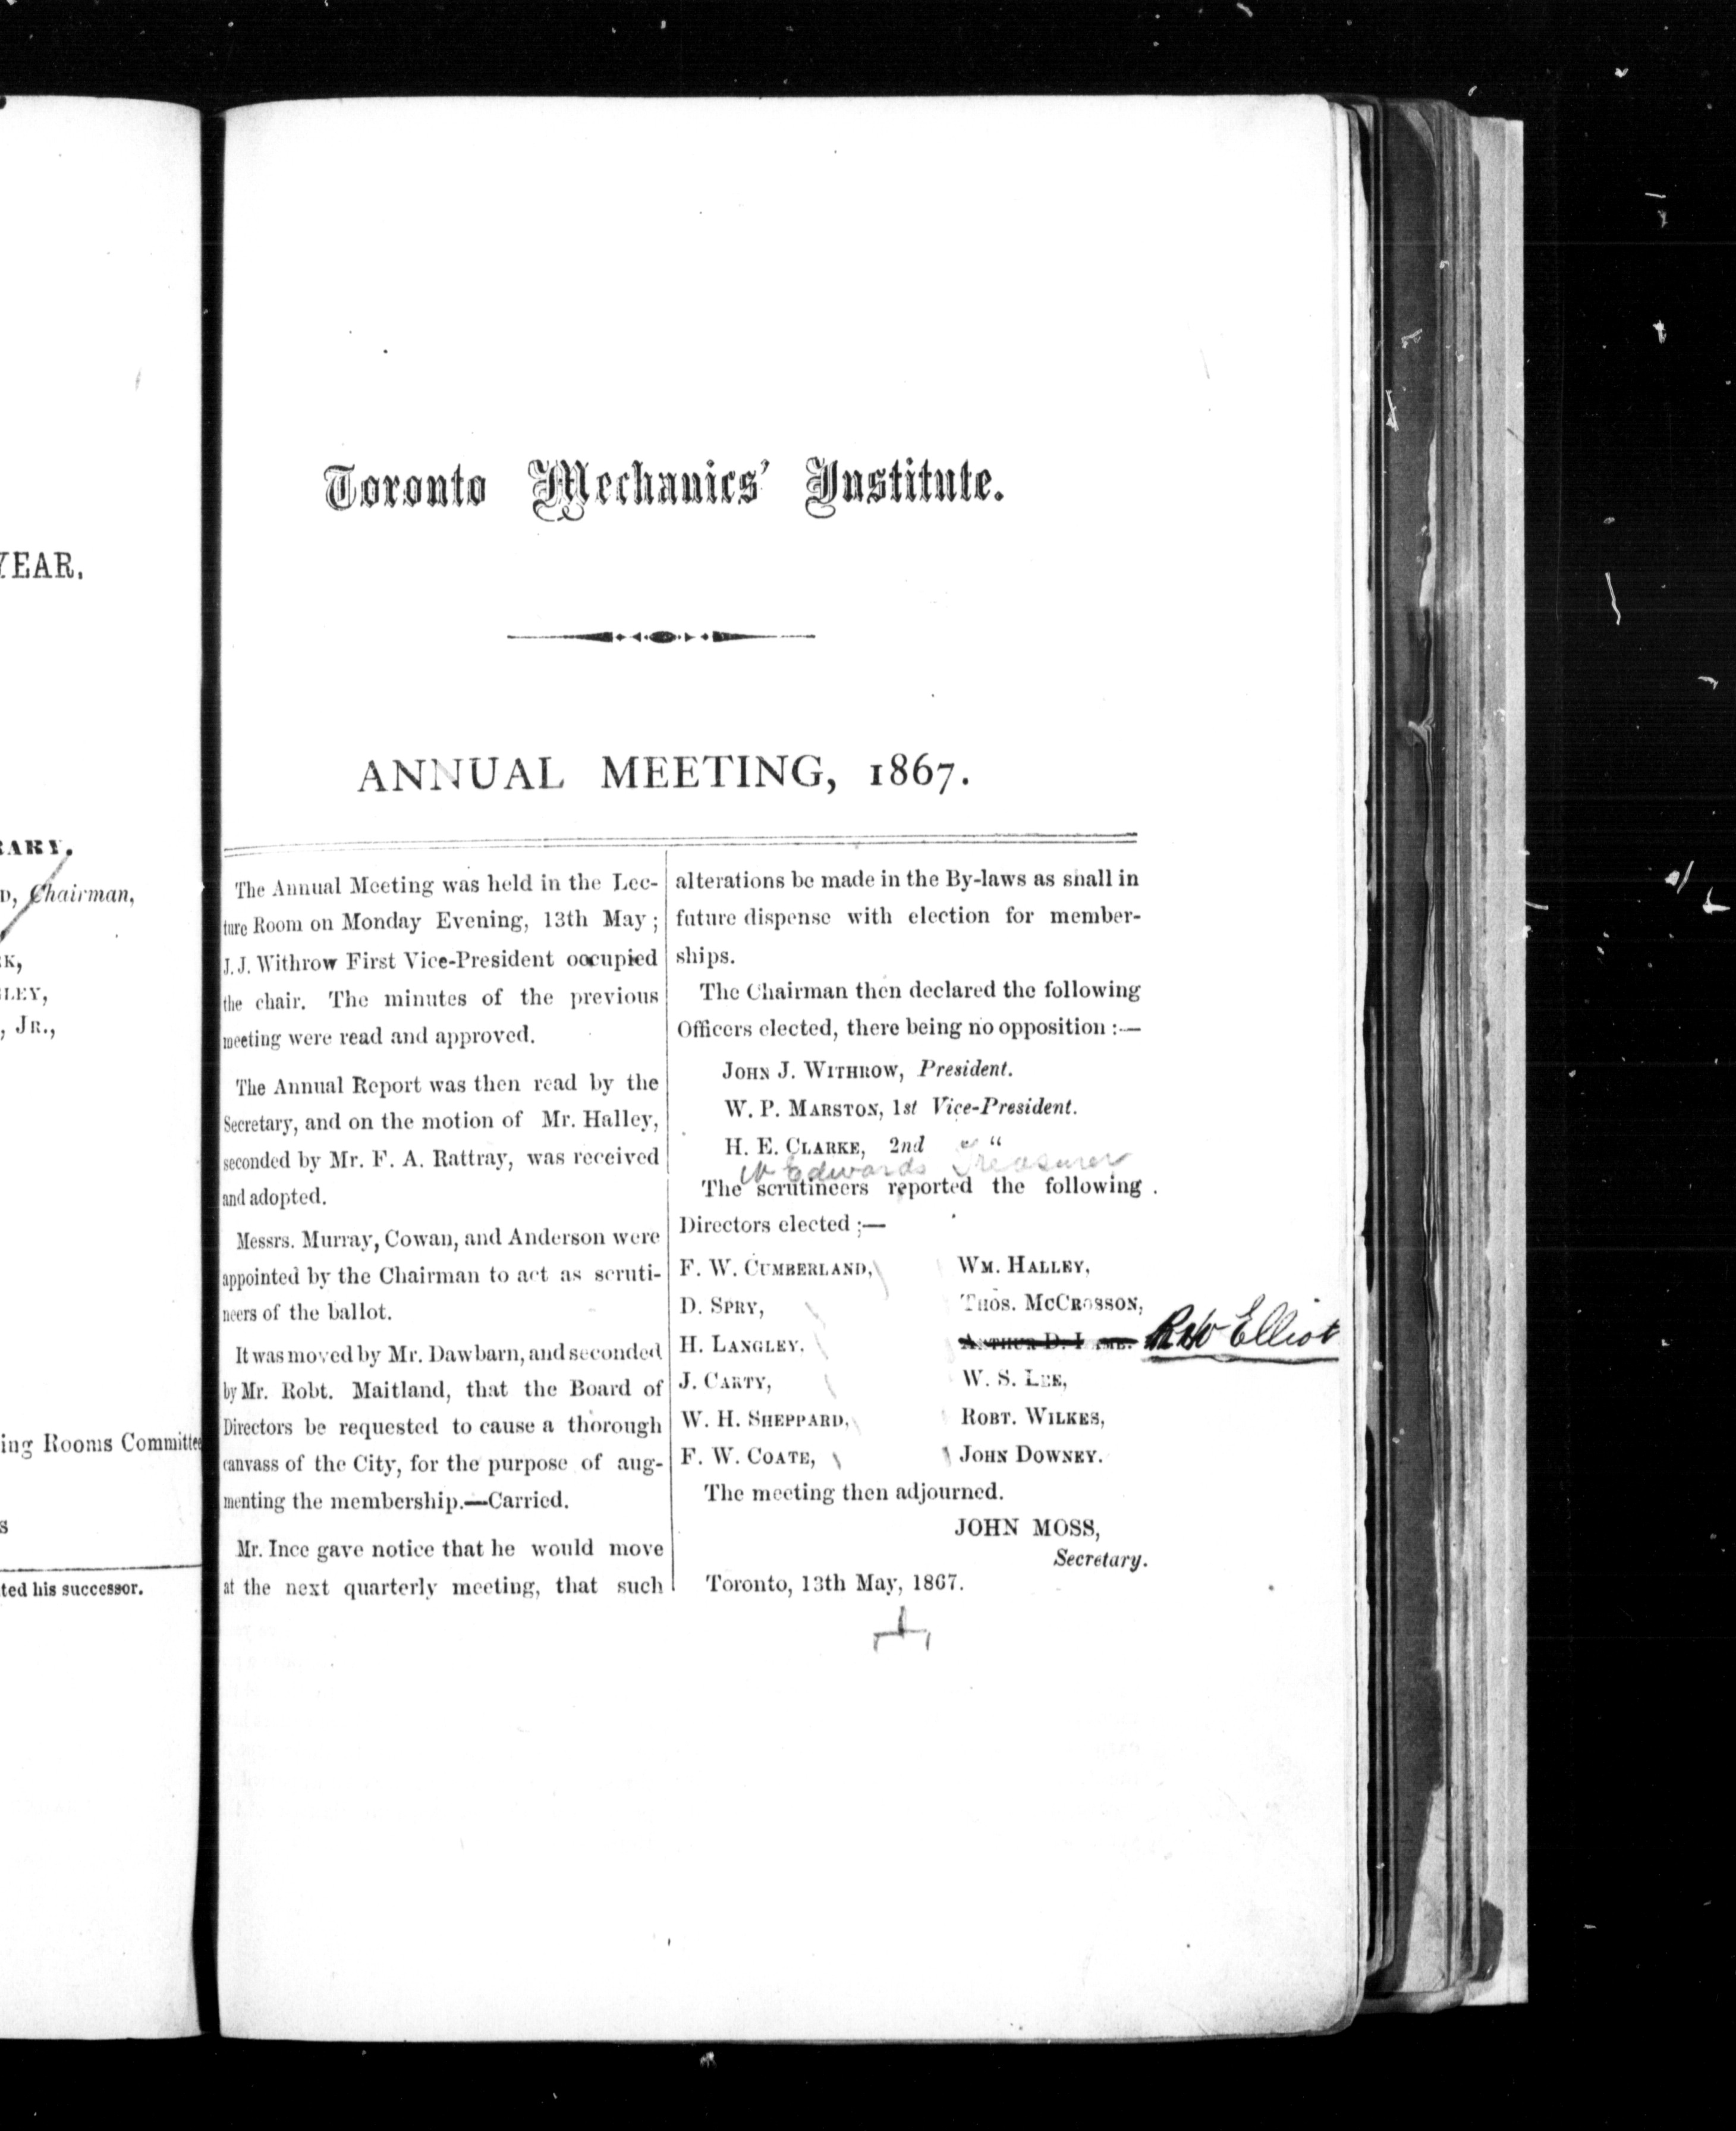 YEAR,
RARY.
D, Chairman,
CK,
LEY,
, JR.,
ing Rooms Committee
s
ted his successor.
Toronto Mechanics' Institute.
ANNUAL MEETING, 1867.
The Annual Meeting was held in the Lec-
ture Room on Monday Evening, 13th May ;
J. J. Withrow First Vice-President occupied
the chair. The minutes of the previous
meeting were read and approved.
The Annual Report was then read by the
Secretary, and on the motion of Mr. Halley,
seconded by Mr. F. A. Rattray, was received
and adopted.
Messrs. Murray, Cowan, and Anderson were
appointed by the Chairman to act as scruti-
neers of the ballot.
It was moved by Mr. Dawbarn, and seconded
by Mr. Robt. Maitland, that the Board of
Directors be requested to cause a thorough
canvass of the City, for the purpose of aug-
menting the membership.—Carried.
Mr. Ince gave notice that he would move
at the next quarterly meeting, that such
alterations be made in the By-laws as shall in
future dispense with election for member-
ships.
The Chairman then declared the following
Officers elected, there being no opposition :—
JOHN J. WITHROW, President.
W. P. MARSTON, 1st Vice-President.
H. E. CLARKE, 2nd " "
W Edwards Treasurer
The scrutineers reported the following
Directors elected ;—
F. W. CUMBERLAND,
D. SPRY,
H. LANGLEY,
J. CARTY,
W. H. SHEPPARD,
F. W. COATE,
WM. HALLEY,
THOS. MCCROSSON,
ARTHUR D. R W Elliot
W. S. LEE,
ROBT. WILKES,
JOHN DOWNEY.
The meeting then adjourned.
JOHN MOSS,
Secretary.
Toronto, 13th May, 1867.